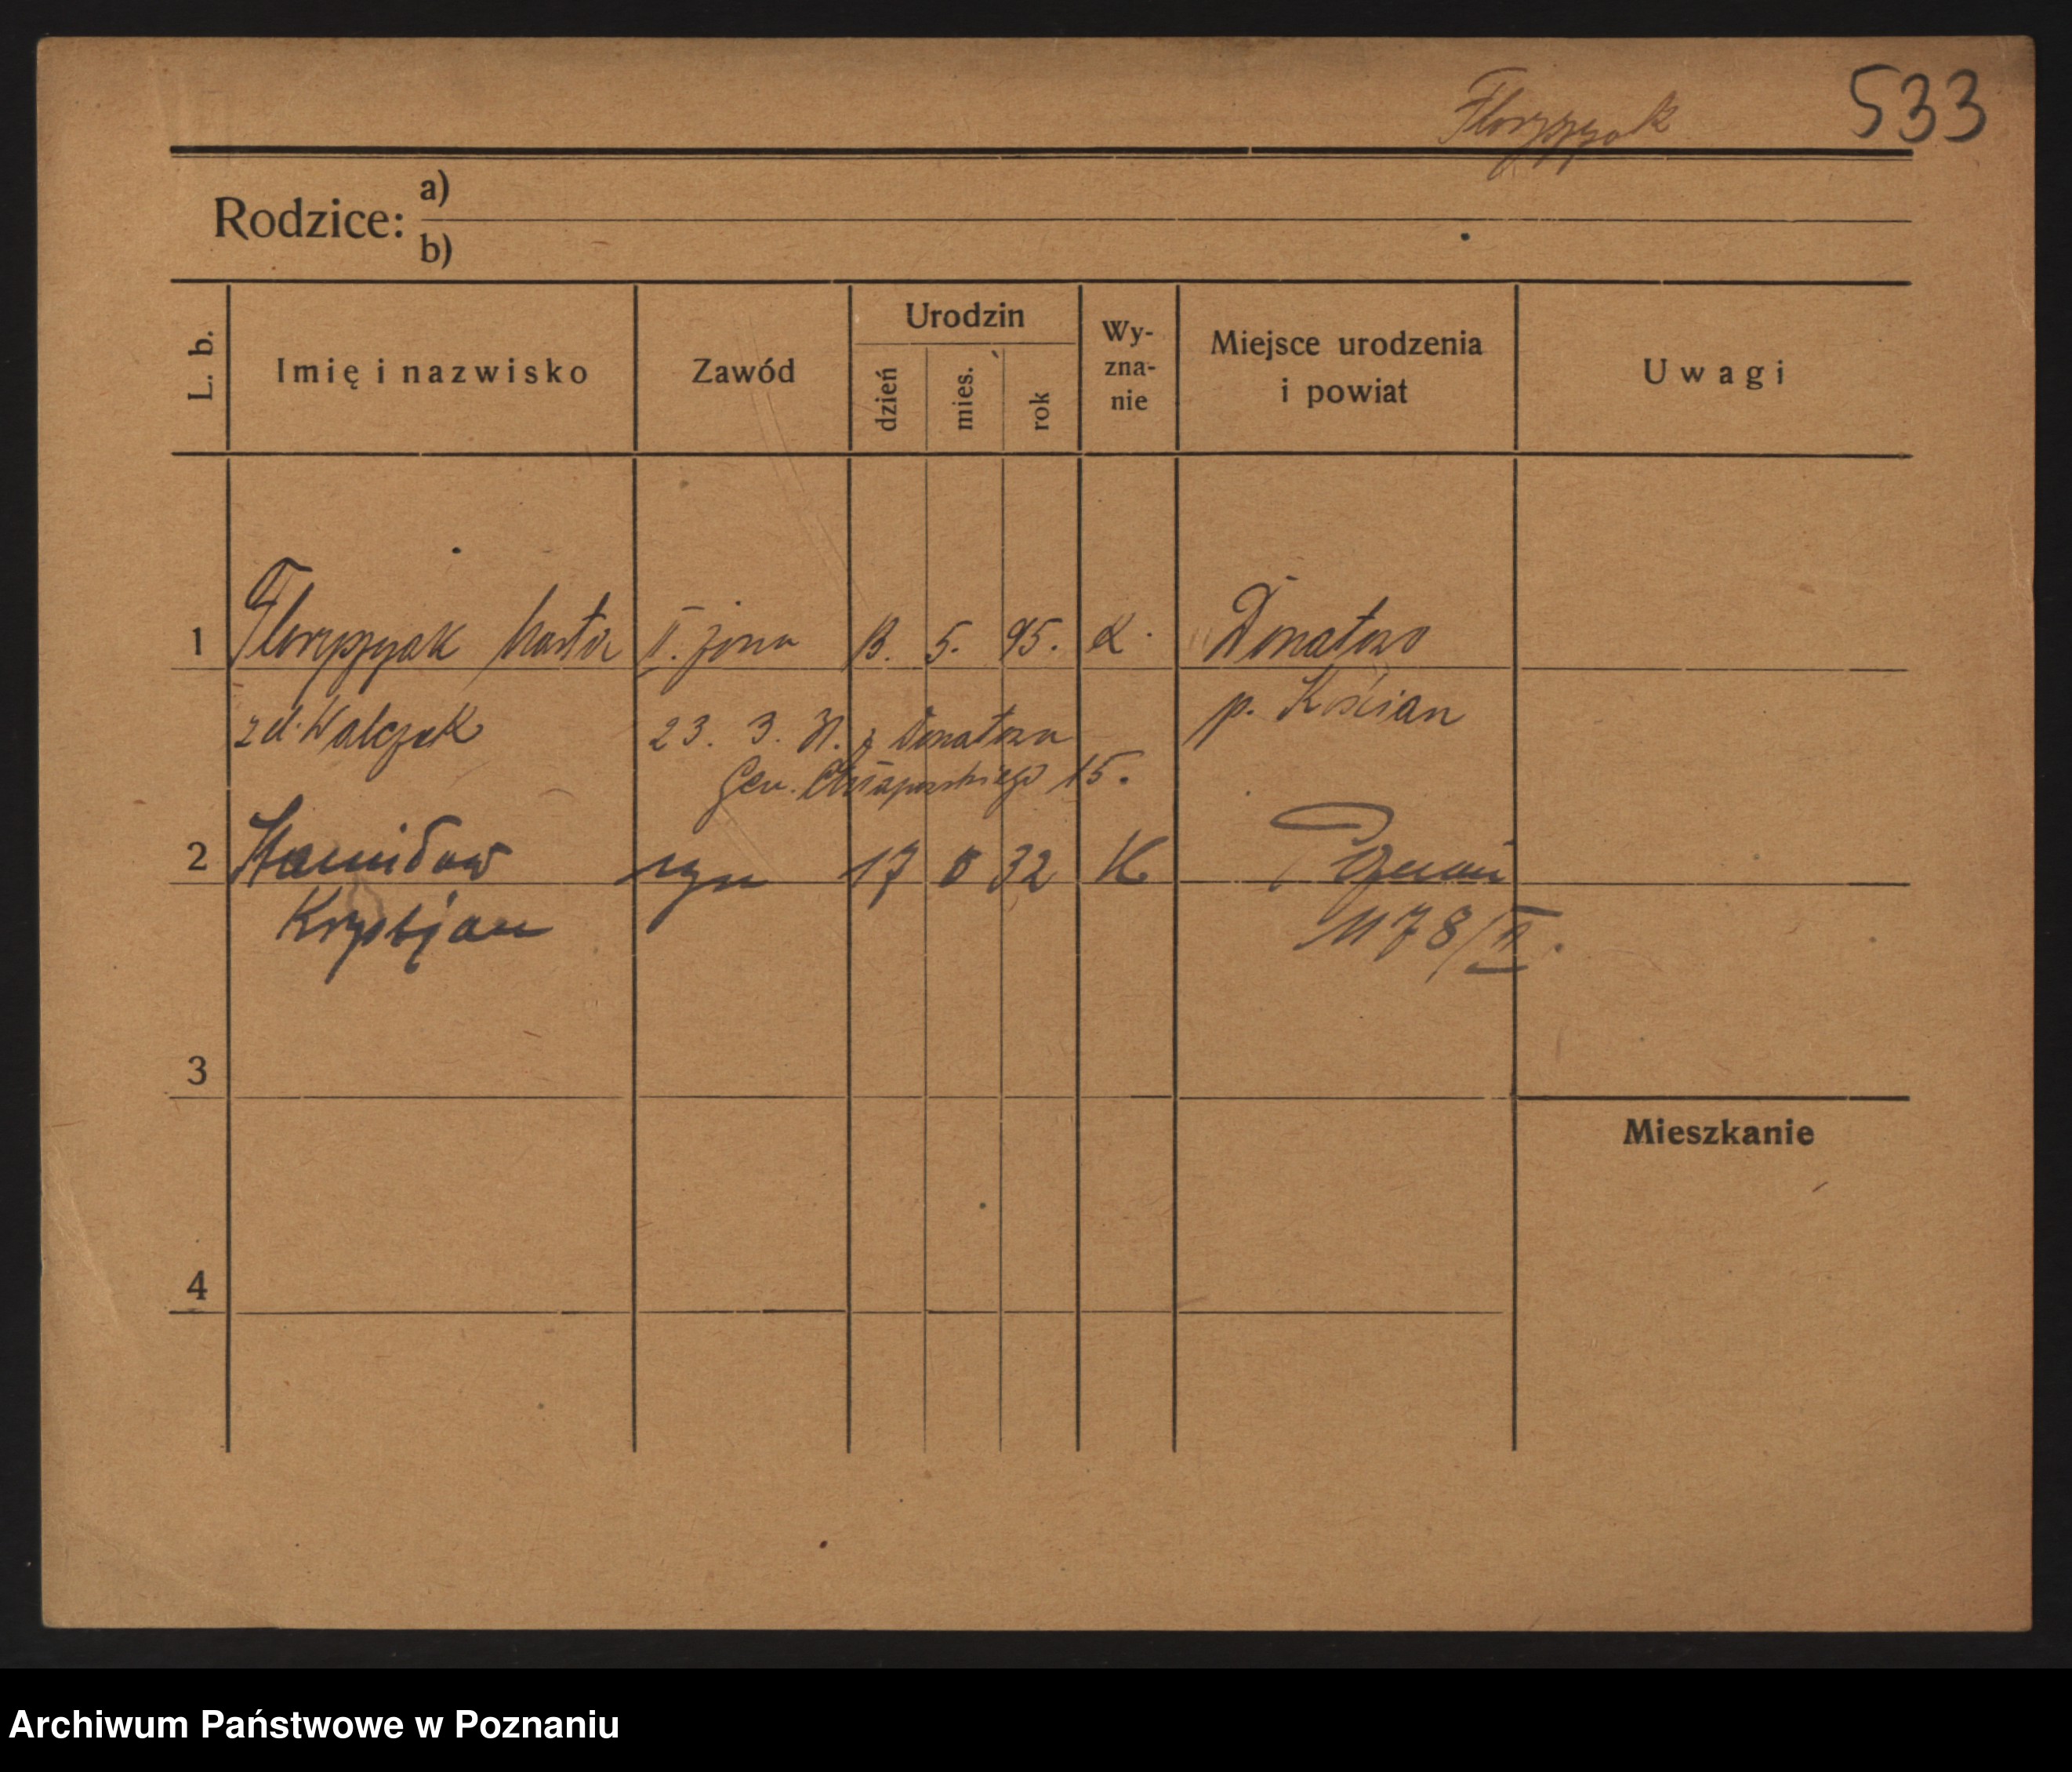 Floryszak 533
Rodzice: a)
b)
L. b. Imię i nazwisko Zawód Urodzin dzień mies. rok Wy-zna-nie Miejsce urodzenia i powiat Uwagi
1 Marta II. żona 5. 95. K. Donatowo
zd. Walczak 23. 3. 31. z Donatowa p. Kościan
Gen. Chłapowskiego 15.
2 Stanisław syn 17 32 K Poznań
Krystjan 1178/II.
3
Mieszkanie
4
Archiwum Państwowe w Poznaniu